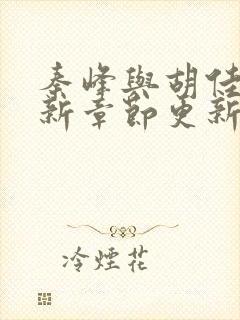 秦峰與胡佳
新章節更新
冷煙花